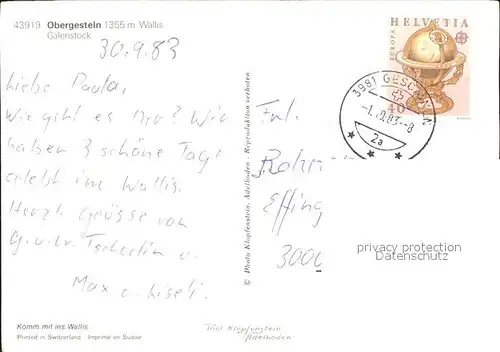 43919 Obergesteln 1355 m Wallis
Galenstock
30.9.83
Liebe Paula,
Wie geht es Dir? Wir
haben 3 schöne Tage
erlebt im Wallis.
Herzl. Grüsse von
Max u. Liseli.
Komm mit ins Wallis
Printed in Switzerland Imprimé en Suisse
© Photo Klopfenstein, Adelboden - Reproduktion verboten
HELVETIA
EUROPA
40
3981 GESCHINEN
-1.10.83--8
2a
Frl.
Effing
3000
privacy protection
Datenschutz
Foto Klopfenstein
Adelboden